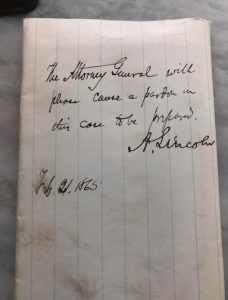 The Attorney General will
please cause a pardon in
this case to be prepared.
A. Lincoln
Feb. 21. 1865